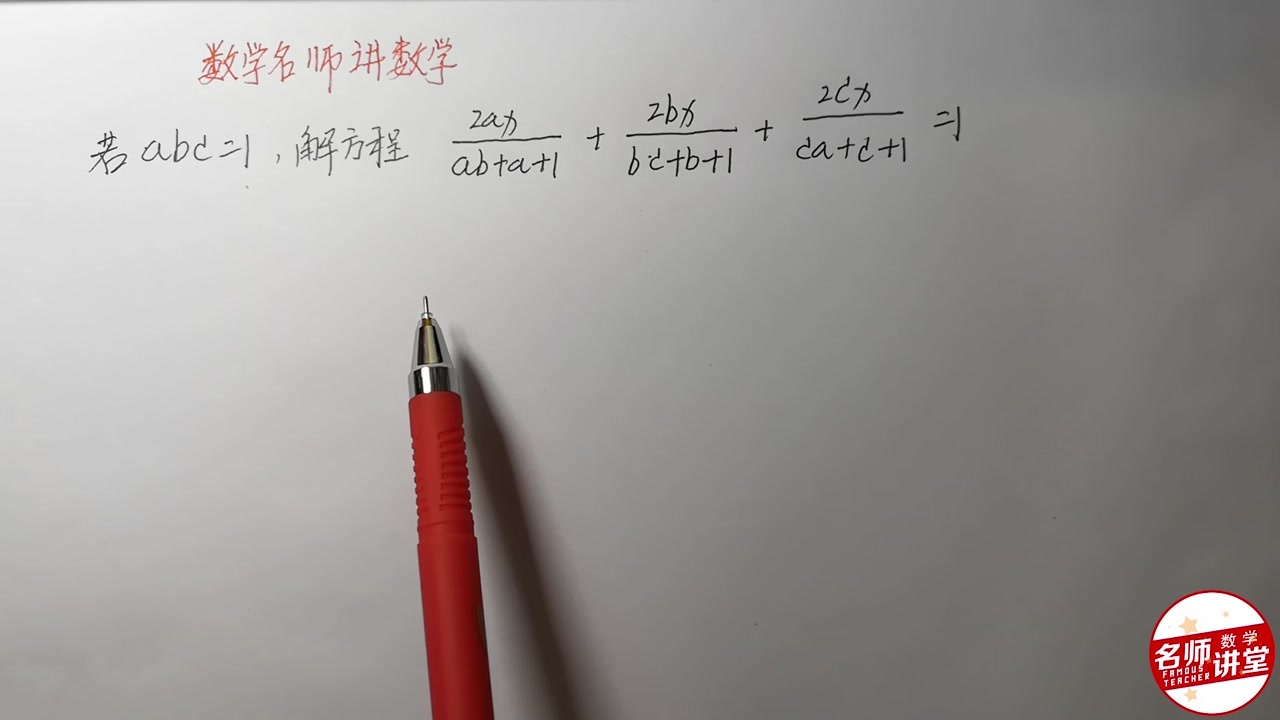 数学名师讲数学
若abc=1,解方程 2ax/(ab+a+1) + 2bx/(bc+b+1) + 2cx/(ca+c+1) =1
数学
名师讲堂
FAMOUS
TEACHER